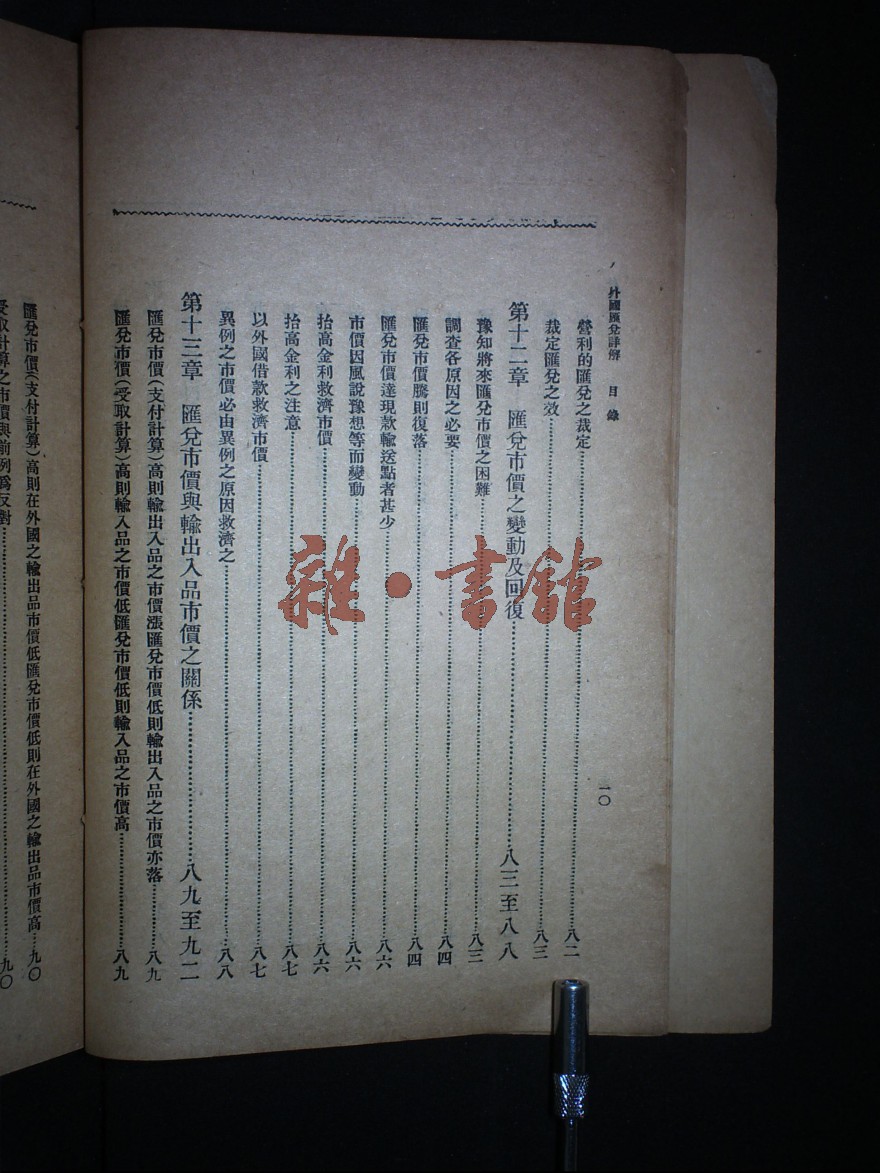 外國匯兌詳解 目錄 一〇
營利的匯兌之裁定…………八二
裁定匯兌之效…………八三
第十二章 匯兌市價之變動及回復…………八三至八八
豫知將來匯兌市價之困難…………八三
調查各原因之必要…………八四
匯兌市價騰則復落…………八四
匯兌市價達現款輸送點者甚少…………八六
市價因風說豫想等而變動…………八六
抬高金利救濟市價…………八六
抬高金利之注意…………八七
以外國借款救濟市價…………八七
異例之市價必由異例之原因救濟之…………八八
第十三章 匯兌市價與輸出入品市價之關係…………八九至九二
匯兌市價(支付計算)高則輸出入品之市價漲匯兌市價低則輸出入品之市價亦落…………八九
匯兌市價(受取計算)高則輸入品之市價低匯兌市價低則輸入品之市價高…………八九
匯兌市價(支付計算)高則在外國之輸出品市價低匯兌市價低則在外國之輸出品市價高…九〇
受取計算之市價與前例爲反對…………九〇
雜·書館